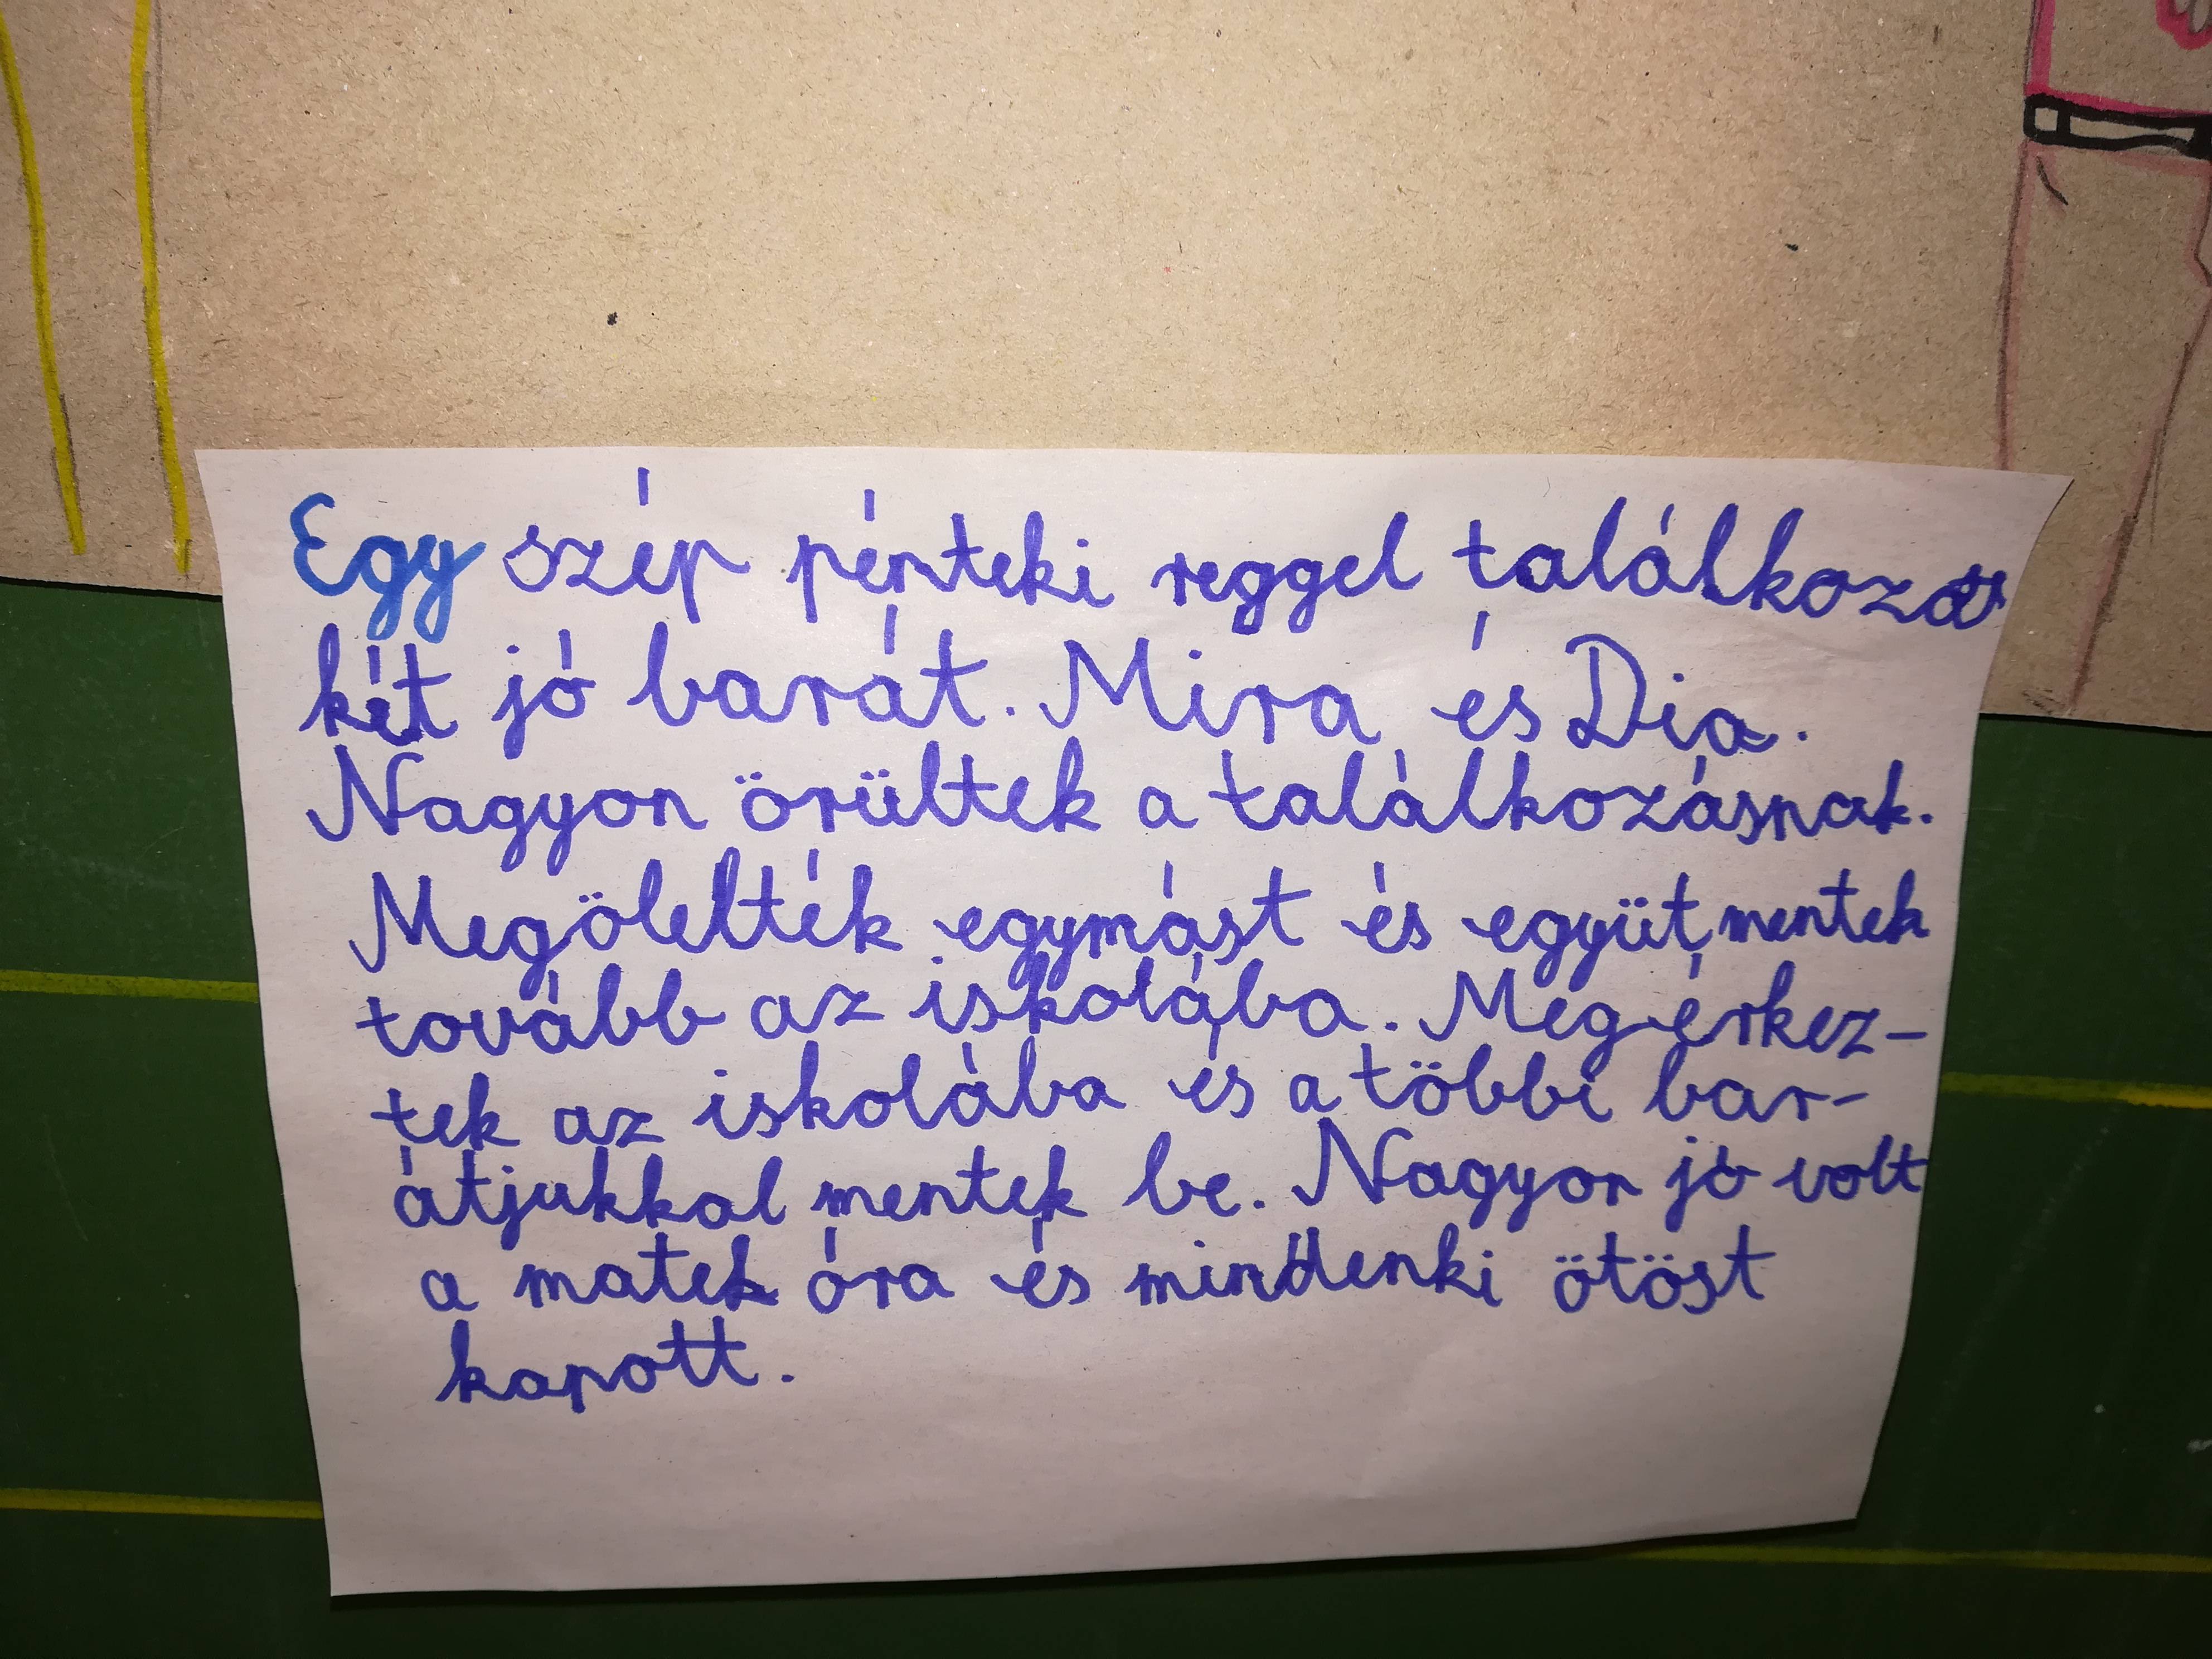 Egy szép pénteki reggel találkozott
két jó barát. Mira és Dia.
Nagyon örültek a találkozásnak.
Megölelték egymást és együt mentek
tovább az iskolába. Meg érkez-
tek az iskolába és a többi bar-
átjukkal mentek be. Nagyon jó volt
a matek óra és mindenki ötöst
kapott.